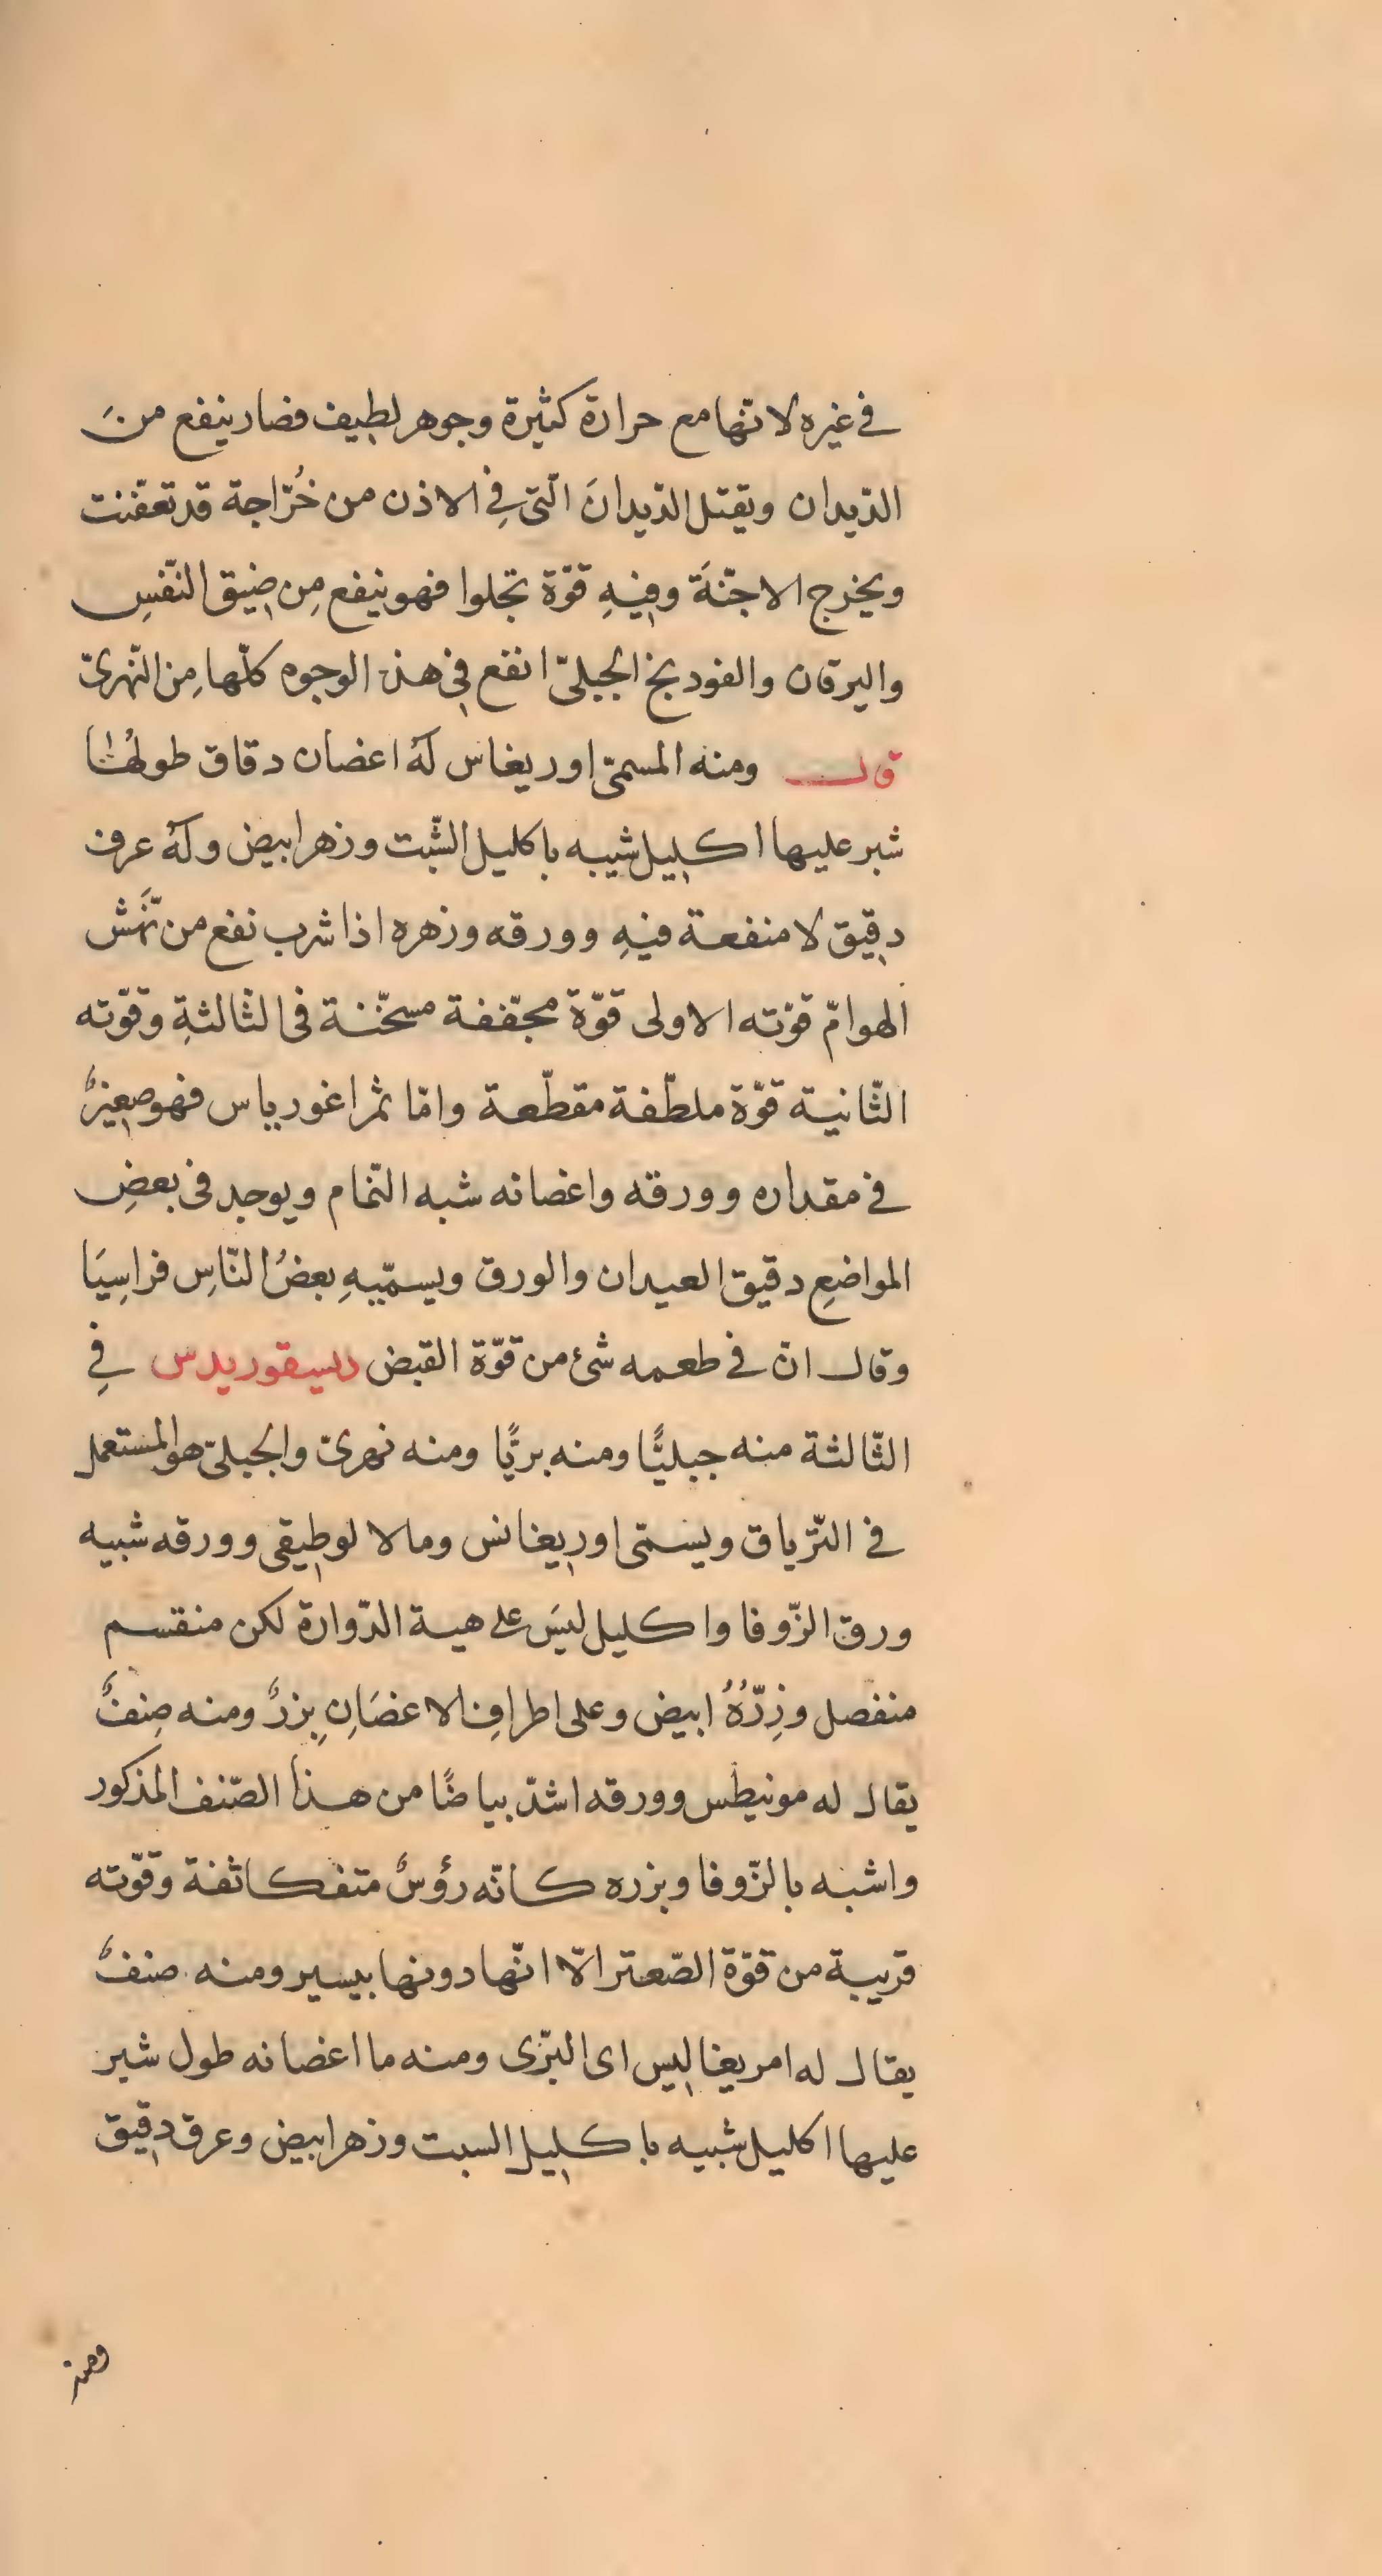 في غيره لانها مع حرارة كثيرة وجوهر لطيف فصار ينفع منَ
الدّيدان ويقتل الدّيدانَ الّتى فِي الاذن من خُرّاجة قد تعفّنت
ويخرج الاجنّةَ وفيهِ قوّة تجلوا فهو ينفع مِن ضيق النّفسِ
واليرقان والفودبخ الجبلىّ انفع فى هذه الوجوه كلّها مِن النّهرىّ
قال ومنه المسمّى اوريغاس لهُ اغصان دقاق طولهُا
شبر عليها اكليل شبيه باكليل الشّبت وزهر ابيض ولهُ عرق
دقيق لا منفعة فيهِ وورقه وزهره اذا شرب نفع من نَهش
الهوامّ قوّته الاولى قوّة مجفّفة مسخّنة فى الثّالثةِ وقوّته
الثّانية قوّة ملطّفة مقطّعة وامّا ثمر اغورياس فهو صغيرٌ
في مقداره وورقه واغصانه شبه النّمام ويوجد فى بعضِ
المواضعِ دقيق العيدان والورق ويسمّيهِ بعضُ النّاسِ فراسِيَا
وقال انّ في طعمه شئ من قوّة القبض ديسقوريدس فِي
الثّالثة منه جبليًّا ومنه بريًّا ومنه نهرىّ والجبلىّ هو المستعمل
في التّرياق ويسمّى اوريغانس ومالا لوطيقى وورقه شبيه
ورق الزّوفا واكليل ليسَ على هية الدّوارة لكن منقسم
منفصل وزِرّهُ ابيض وعلى اطرافِ الاغصَانِ بِزرٌ ومنه صِنفٌ
يقال له مونيطس وورقه اشدّ بياضًا من هذا الصّنف المذكور
واشبه بالزّوفا وبزره كانّه رؤسٌ متفكاثفة وقوّته
قريبة من قوّة الصّعتر الّا انّها دونها بيسير ومنه صنفٌ
يقال له امريغاليس اى البرّى ومنه ما اغصانه طول شبر
عليها اكليل شبيه باكليل السبت وزهر ابيض وعرق دقيق
ومنه